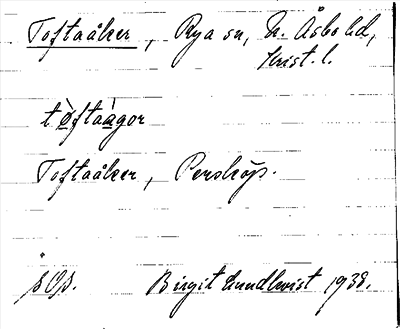 Toftaåker, Rya sn, N. Åsbo hd,
Krist. l.
tòftaàgor
Toftaåker, Perstorp.
Birgit Lundkvist 1938.